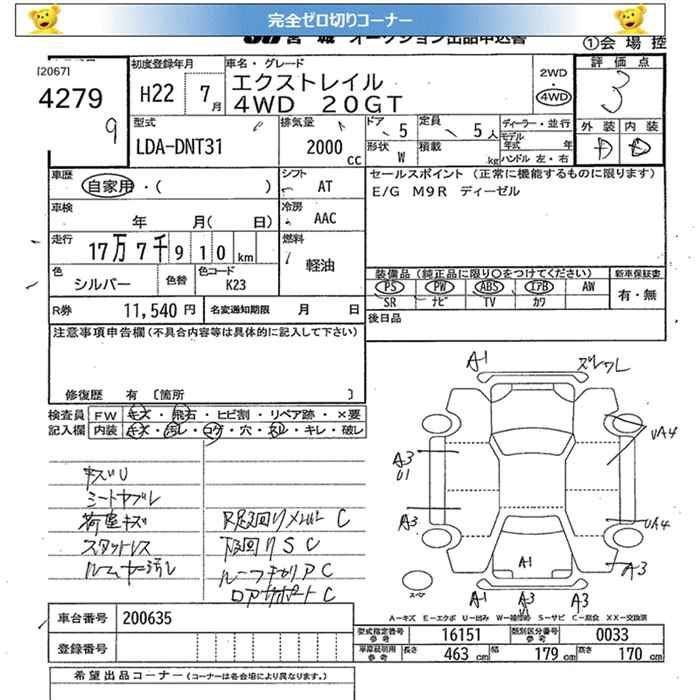 完全ゼロ切りコーナー
宮城 オークション出品申込書 ①会場控
[2067]
4279
9
初度登録年月
H22 7月
車名・グレード
エクストレイル
4WD 20GT
2WD
・
4WD
評価点
3
外装 内装
D D
型式
LDA-DNT31
排気量
2000 cc
ドア 5
定員 5人
形状 W
積載 kg
ディーラー・並行
モデル年式 年
ハンドル 左・右
車歴
自家用・( )
シフト
AT
セールスポイント (正常に機能するものに限ります)
E/G M9R ディーゼル
車検
年 月( 日)
冷房
AAC
走行
17万7千910km
燃料
軽油
色
シルバー
色替
色コード
K23
装備品 (純正品に限り○をつけてください)
新車保証書
PS PW ABS エアB AW
SR ナビ TV カワ
有・無
R券 11,540円
名変通知期限 月 日
後日品
注意事項申告欄 (不具合内容等は具体的に記入して下さい)
修復歴 有 〔箇所 〕
検査員記入欄
FW キズ・飛石・ヒビ割・リペア跡・×要
内装 キズ・汚レ・コゲ・穴・ネジ・キレ・破レ
キズU
シートヤブレ
荷室キズ
スタットレス
ルームヤニ汚レ
R足回りメンバーC
下回りSC
ルーフキカリPC
ロアサポートC
A1
ズレワレ
UA4
A3
U1
A3
UA4
A3
A1
A1 A3 A3
スペア
A-キズ E-エクボ U-凹み W-補修跡 S-サビ C-腐食 XX-交換済
車台番号 200635
登録番号
型式指定番号 参考 16151
類別区分番号 参考 0033
車庫証明用 参考 長さ 463cm 幅 179cm 高さ 170cm
希望出品コーナー (コーナーは各会場により異なります。)